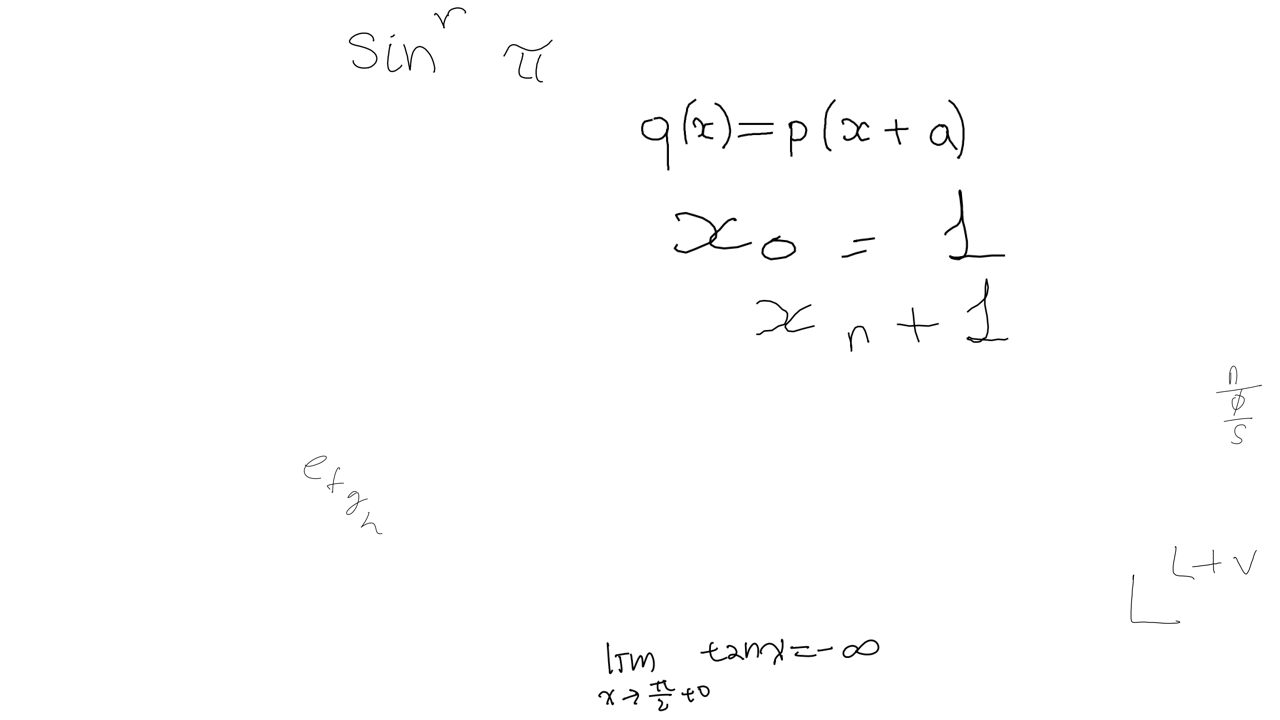 sin^r π
q(x)=p(x+a)
x_0 = 1
x_n + 1
n/(φ/s)
e_{f_{g_h}}
L^{L+v}
lim_{x→π/2+0} tanx=-∞